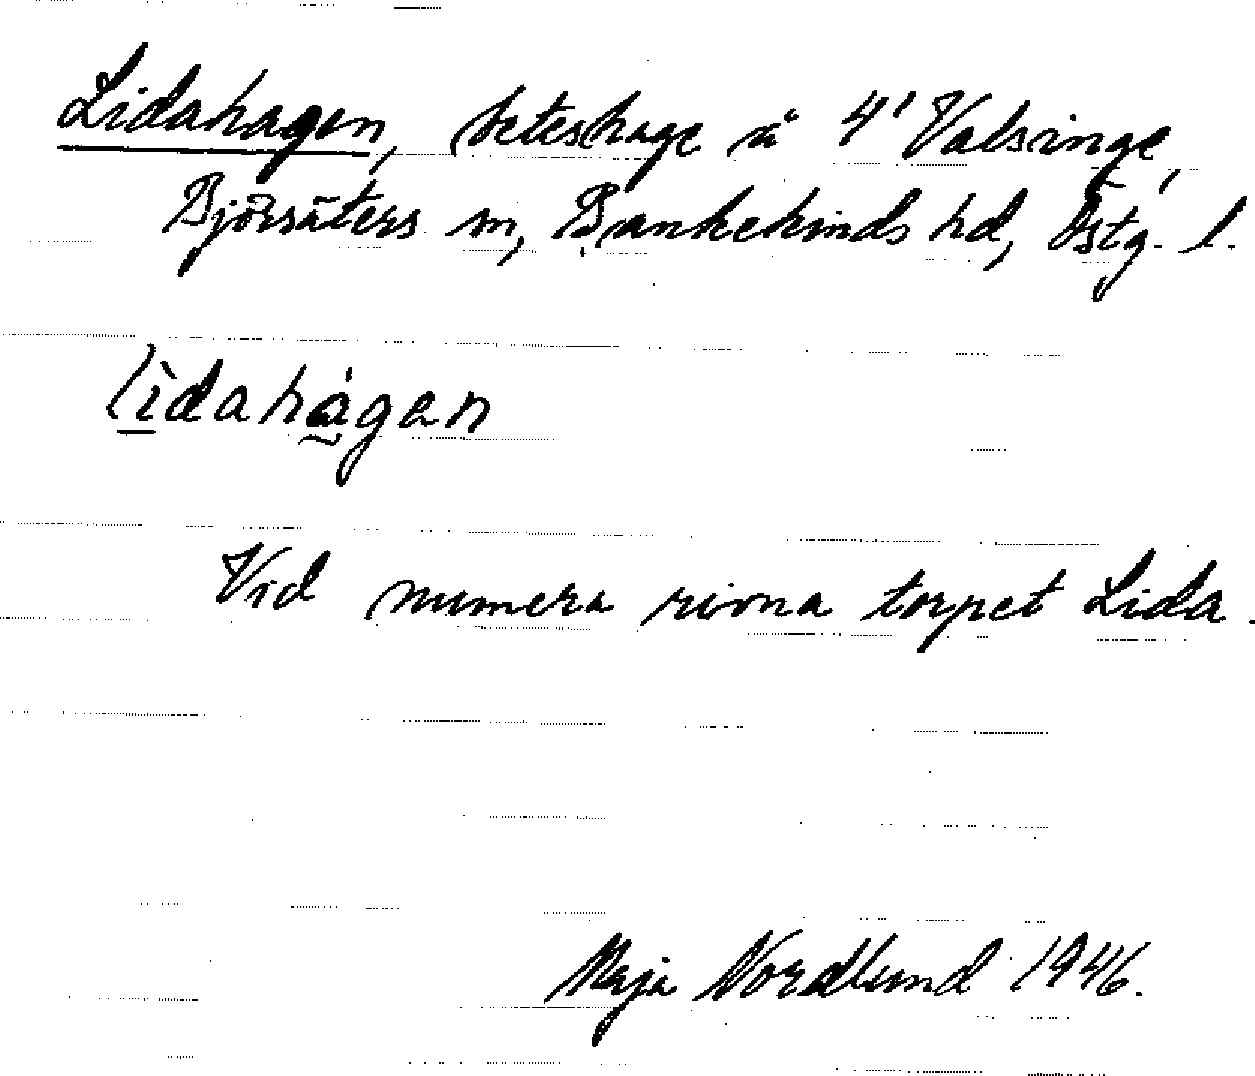 Lidahagen, beteshage å 4' Valsinge,
Björsäters sn, Bankekinds hd, Östg. l.
lìdahágan
Vid numera rivna torpet Lida.
Maja Nordlund 1946.